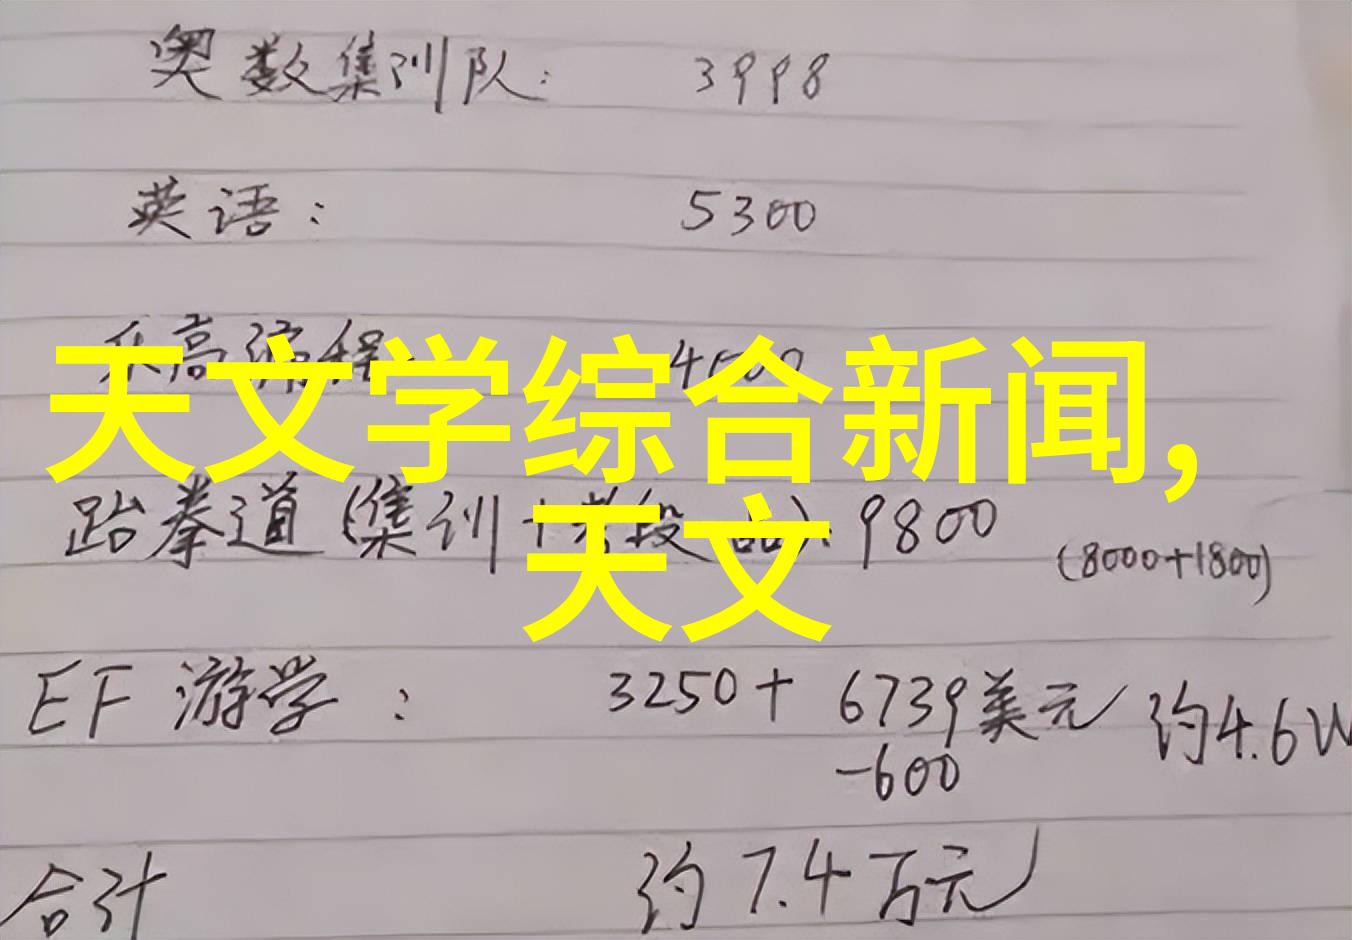 奥数集训队: 3998
英语: 5300
乐高编程:
天文学综合新闻,
跆拳道(集训+考段一品): 9800 (8000+1800)
天文
EF 游学: 3250+ 6739美元 约4.6W
-600
合计 约7.4万元